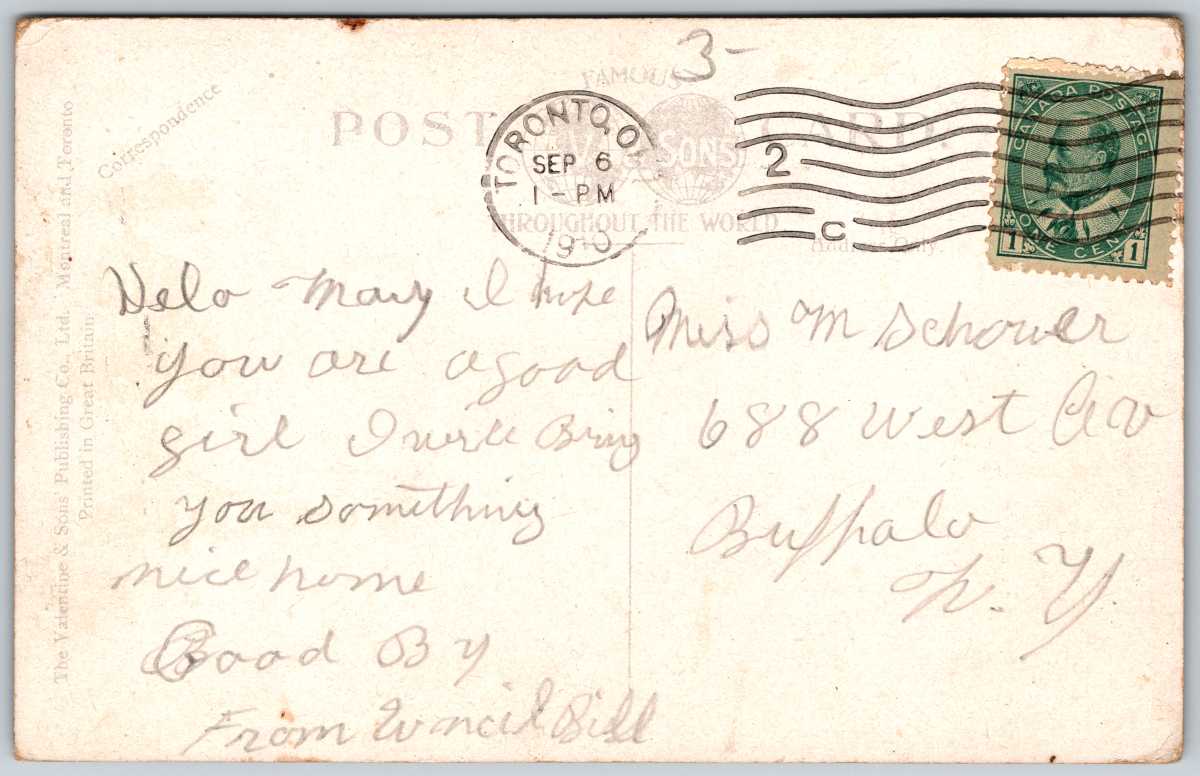 3-
FAMOUS
POST CARD.
SONS
THROUGHOUT THE WORLD
Address Only.
Correspondence
The Valentine & Sons' Publishing Co., Ltd. Montreal and Toronto
Printed in Great Britain.
TORONTO, O
SEP 6
1-PM
1910
2
C
CANADA POSTAGE
1 ONE CENT 1
Helo Mary I hope
you are a good
girl I will Bring
you something
nice home
Good By
From Uncil Bill
Miss M Schower
688 West Av
Buffalo
N. Y